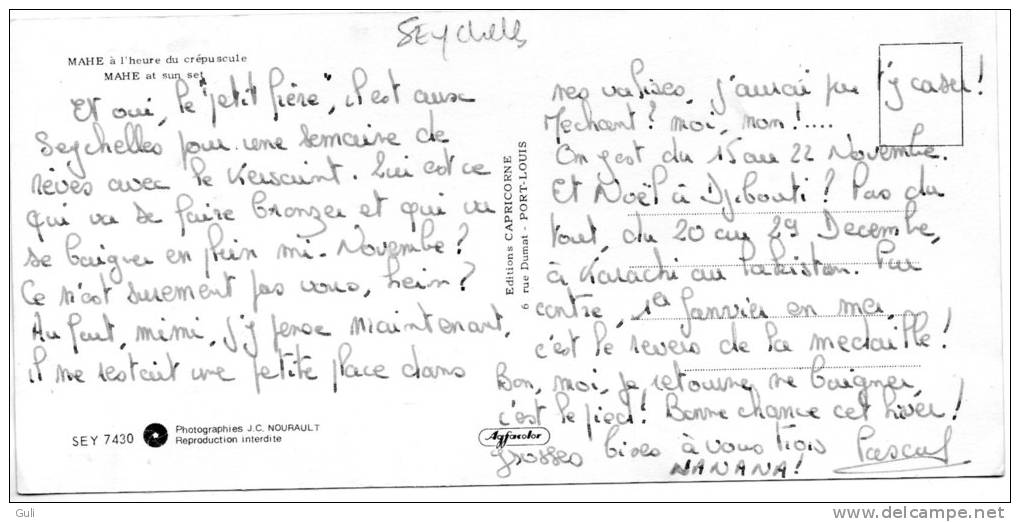 Seychelles
MAHE à l'heure du crépuscule
MAHE at sun set
Et oui, le "petit frère", il est aux
Seychelles pour une semaine de
rêves avec le Kersaint. Lui est ce
qui va se faire bronzer et qui va
se baigner en plein mi-Novembre?
Ce n'est surement pas vous, hein?
Au fait, mimi, j'y pense maintenant,
il me restait une petite place dans
SEY 7430
Photographies J.C. NOURAULT
Reproduction interdite
Editions CAPRICORNE
6 rue Dumat - PORT-LOUIS
Agfacolor
mes valises, j'aurai pu t'y caser!
Mechant? moi, non!....
On y est du 15 au 22 Novembre.
Et Noël à Djibouti? Pas du
tout, du 20 au 29 Decembre,
à Karachi au Pakistan. Par
contre, 1er Janvier en mer,
c'est le revers de la medaille!
Bon, moi, je retourne me baigner,
c'est le pied! Bonne chance cet hiver!
Grosses bises à vous tous
NANANA!
Pascal
Guli
http://www.delcampe.net